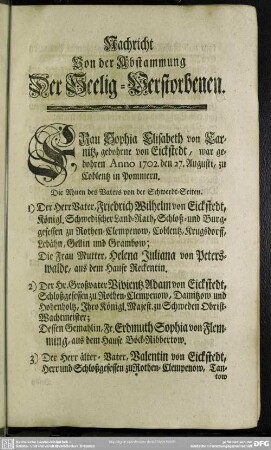 Nachricht
Von der Abstammung
Der Seelig-Verstorbenen.
FRau Sophia Elisabeth von Car-
nitz, gebohrne von Eickstedt, war ge-
bohren Anno 1702 den 27. Augusti, zu
Coblentz in Pommern.
Die Ahnen des Vaters von der Schwerdt-Seiten.
1) Der Herr Vater, Friedrich Wilhelm von Eickstedt,
Königl. Schwedischer Land-Rath, Schloß- und Burg-
gesessen zu Rothen-Clempenow, Coblentz, Krugsdorff,
Lebähn, Gellin und Grambow;
Die Frau Mutter, Helena Juliana von Peters-
walde, aus dem Hause Reckentin.
2) Der Hr. Großvater Vivientz Adam von Eickstedt,
Schloßgesessen zu Rothen-Clempenow, Damitzow und
Hohenholtz, Ihro Königl. Majest. zu Schweden Obrist-
Wachtmeister;
Dessen Gemahlin, Fr. Erdmuth Sophia von Flem-
ming, aus dem Hause Böck-Ribbertow,
3) Der Herr älter-Vater, Valentin von Eickstedt,
Herr und Schloßgesessen zu Rothen-Clempenow, Tan-
tow